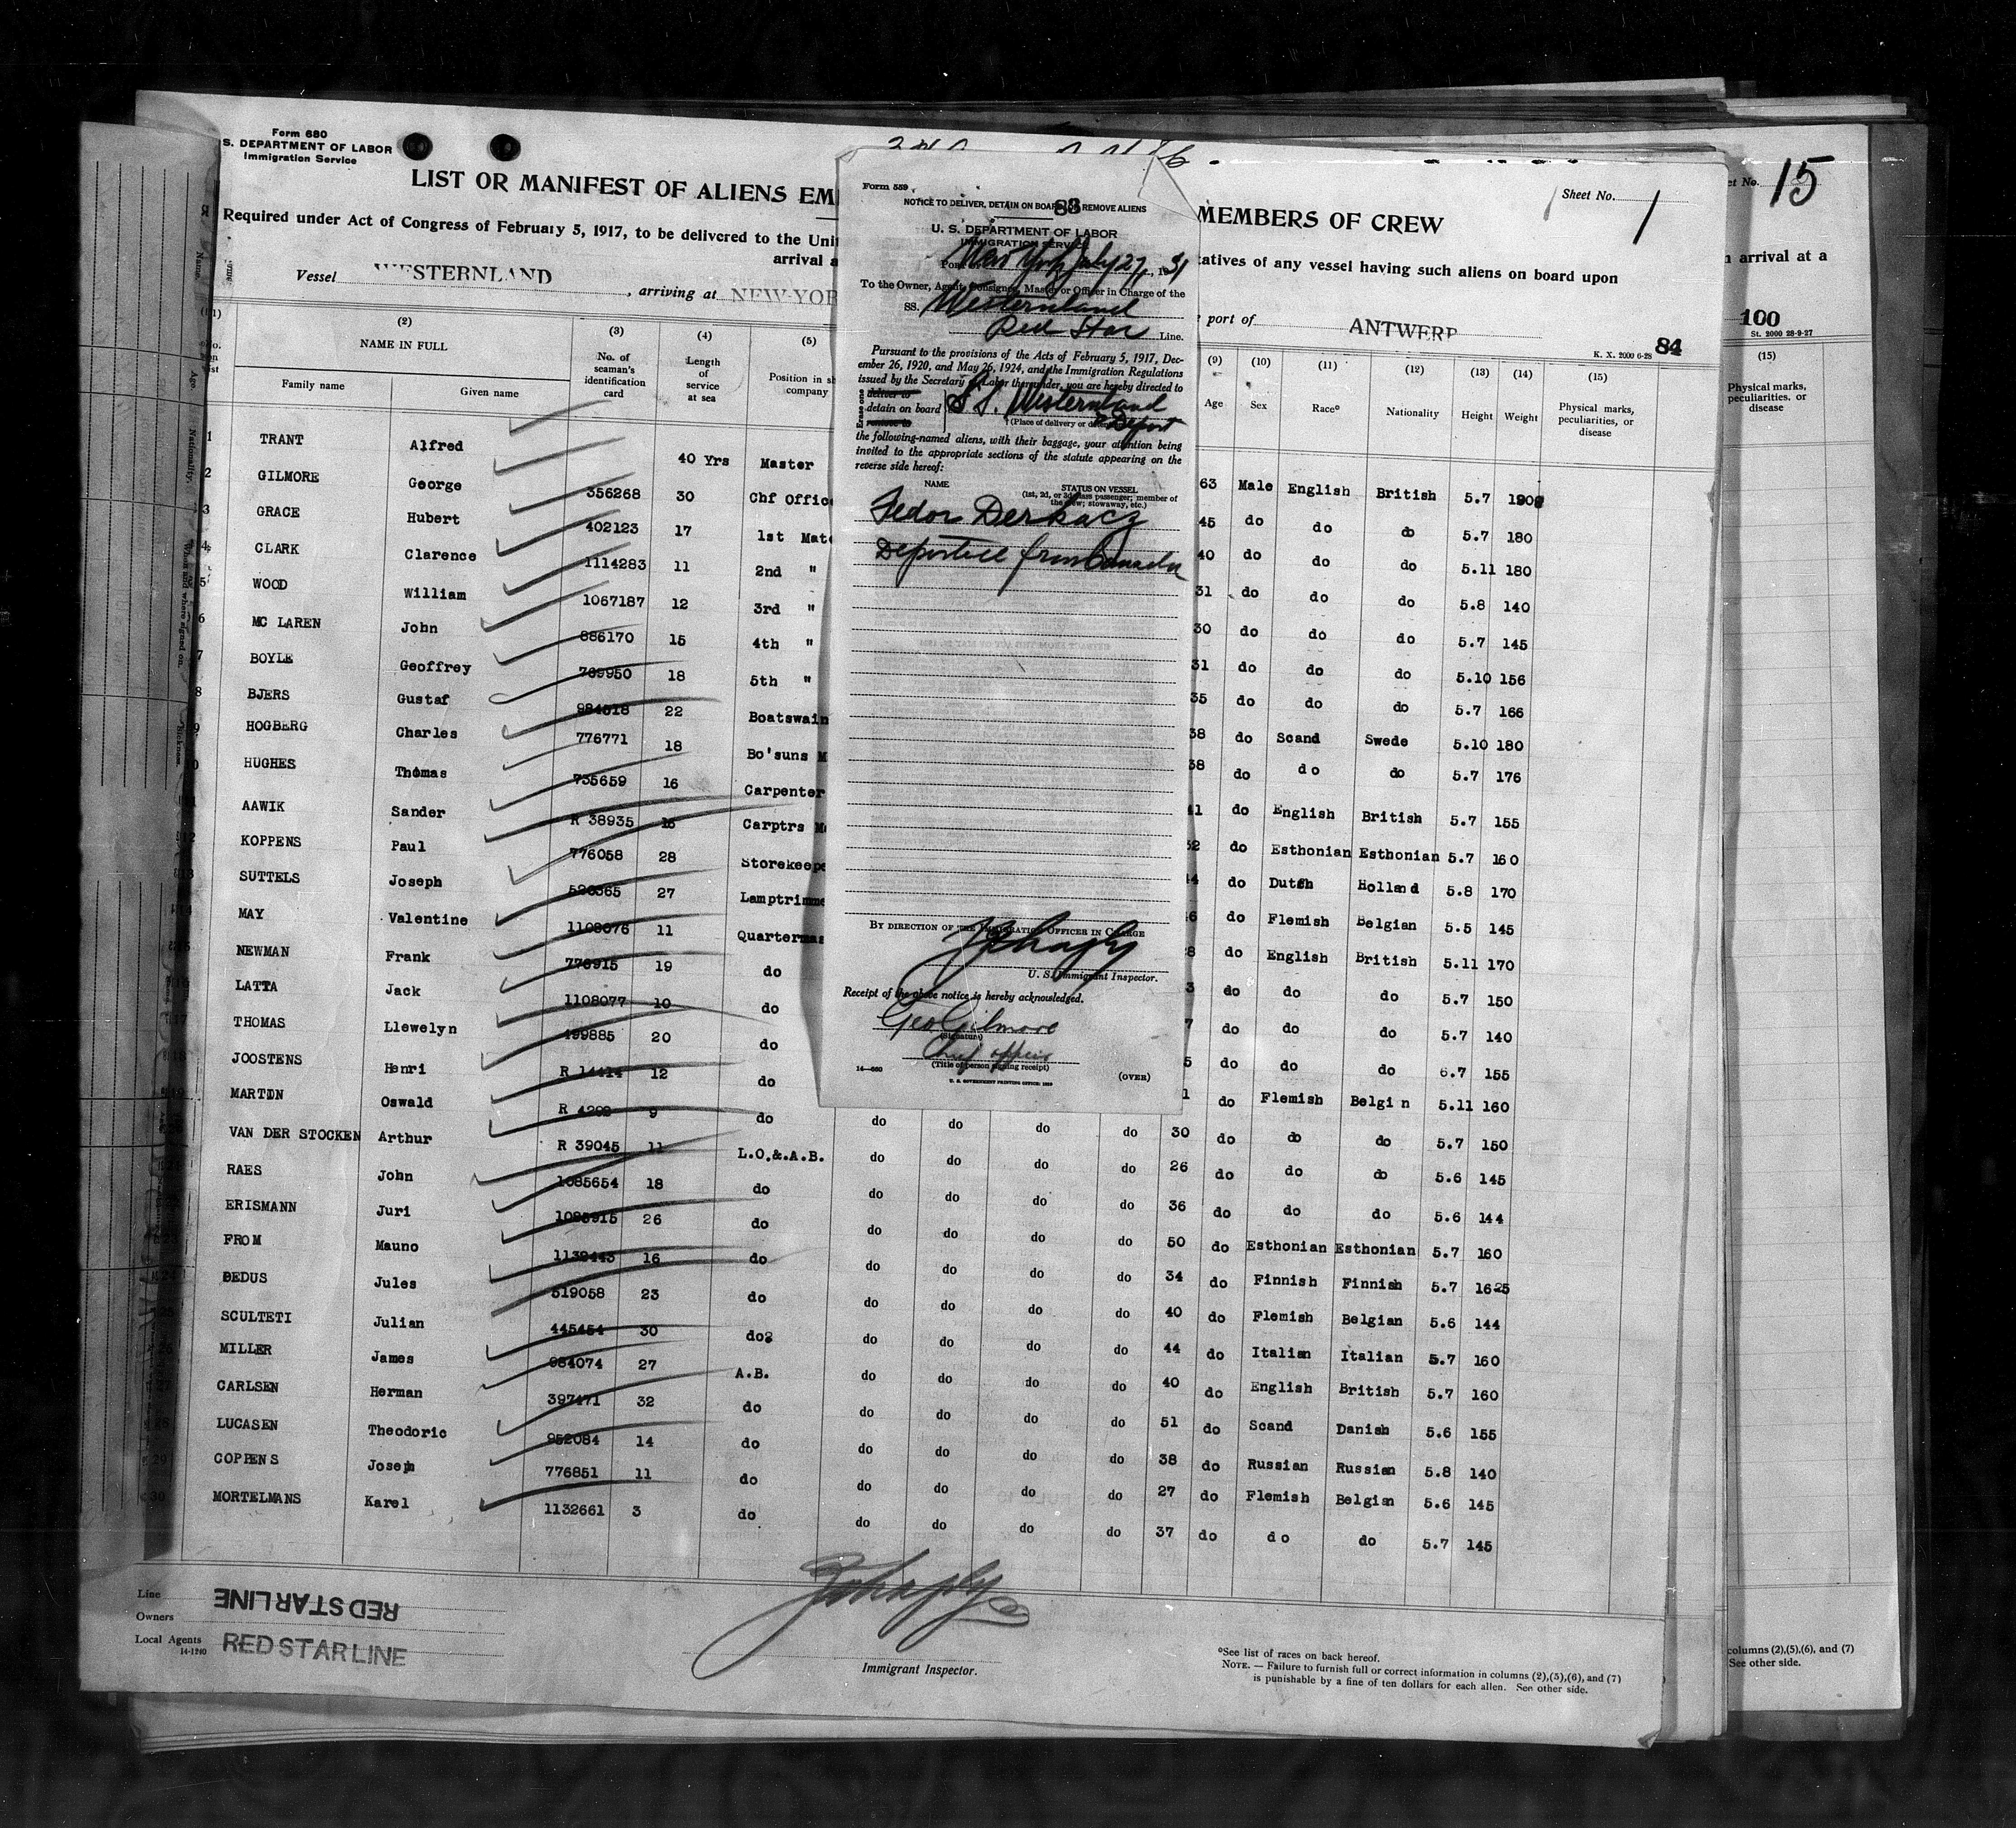 Form 680
S. DEPARTMENT OF LABOR
Immigration Service
LIST OR MANIFEST OF ALIENS EM
Required under Act of Congress of February 5, 1917, to be delivered to the Uni
arrival a
Vessel WESTERNLAND, arriving at NEW-YOR
MEMBERS OF CREW
Sheet No. 1
tatives of any vessel having such aliens on board upon
port of ANTWERP
K. X. 2000 6-28 84
(2) (3) (4) (5)
NAME IN FULL
Family name Given name
No. of seaman's identification card
Length of service at sea
Position in sh company
(9) (10) (11) (12) (13) (14) (15)
Age Sex Race° Nationality Height Weight Physical marks, peculiarities, or disease
1 TRANT Alfred 40 Yrs Master 63 Male English British 5.7
2 GILMORE George 356268 30 Chf Office 45 do do do 5.7 180
3 GRACE Hubert 402123 17 1st Mat 40 do do do 5.11 180
4 CLARK Clarence 1114283 11 2nd " 31 do do do 5.8 140
5 WOOD William 1067187 12 3rd " 30 do do do 5.7 145
6 MC LAREN John 886170 15 4th " 31 do do do 5.10 156
7 BOYLE Geoffrey 769950 18 5th " 35 do do do 5.7 166
8 BJERS Gustaf 984518 22 Boatswain 38 do Scand Swede 5.10 180
9 HOGBERG Charles 776771 18 Bo'suns M 38 do do do 5.7 176
HUGHES Thomas 735659 16 Carpenter 41 do English British 5.7 155
AAWIK Sander R 38935 15 Carptrs M do Esthonian Esthonian 5.7 160
KOPPENS Paul 776058 28 Storekeepe do Dutch Holland 5.8 170
SUTTELS Joseph 27 Lamptrimme do Flemish Belgian 5.5 145
MAY Valentine 1108076 11 Quartermas do English British 5.11 170
NEWMAN Frank 776915 19 do do do do 5.7 150
LATTA Jack 1108077 10 do do do do 5.7 140
THOMAS Llewelyn 499885 20 do do do do 155
JOOSTENS Henri R 14414 12 do do Flemish Belgi n 5.11 160
MARTIN Oswald 9 do do do do do 30 do do do 5.7 150
VAN DER STOCKEN Arthur R 39045 11 L.O.&.A.B. do do do do 26 do do do 5.6 145
RAES John 1085654 18 do do do do do 36 do do do 5.6 144
ERISMANN Juri 1085915 26 do do do do do 50 do Esthonian Esthonian 5.7 160
FROM Mauno 1132443 16 do do do do do 34 do Finnish Finnish 5.7
DEDUS Jules 519058 23 do do do do do 40 do Flemish Belgian 5.6 144
SCULTETI Julian 445454 30 do do do do do 44 do Italian Italian 5.7 160
MILLER James 984074 27 A.B. do do do do 40 do English British 5.7 160
CARLSEN Herman 397471 32 do do do do do 51 do Scand Danish 5.6 155
LUCASEN Theodoric 952084 14 do do do do do 38 do Russian Russian 5.8 140
COPPENS Joseph 776851 11 do do do do do 27 do Flemish Belgian 5.6 145
30 MORTELMANS Karel 1132661 3 do do do do do 37 do do do 5.7 145
Line RED STAR LINE
Owners
Local Agents RED STAR LINE
14-1240
Immigrant Inspector.
°See list of races on back hereof.
NOTE. — Failure to furnish full or correct information in columns (2),(5),(6), and (7)
is punishable by a fine of ten dollars for each alien. See other side.
Form 559
NOTICE TO DELIVER, DETAIN ON BOARD, OR REMOVE ALIENS
83
U. S. DEPARTMENT OF LABOR
IMMIGRATION SERVICE
Port New York July 27, 1931
To the Owner, Agent, Consignee, Master or Officer in Charge of the
SS. Westernland
Red Star Line.
Pursuant to the provisions of the Acts of February 5, 1917, Dec-
ember 26, 1920, and May 26, 1924, and the Immigration Regulations
issued by the Secretary of Labor thereunder, you are hereby directed to
Erase one
deliver to
detain on board S.S. Westernland
remove to
(Place of delivery or Deport
the following-named aliens, with their baggage, your attention being
invited to the appropriate sections of the statute appearing on the
reverse side hereof:
NAME STATUS ON VESSEL
(1st, 2d, or 3d class passenger; member of
the crew; stowaway, etc.)
Fedor Derkacz
Deportee from Canada
BY DIRECTION OF THE IMMIGRATION OFFICER IN CHARGE
U. S. Immigrant Inspector.
Receipt of the above notice is hereby acknowledged.
Geo Gilmore
(Signature)
Chief officer
(Title of person signing receipt)
14—660 (OVER)
U. S. GOVERNMENT PRINTING OFFICE
et No. 15
n arrival at a
100
St. 2000 28-9-27
(15)
Physical marks, peculiarities, or disease
columns (2),(5),(6), and (7)
See other side.